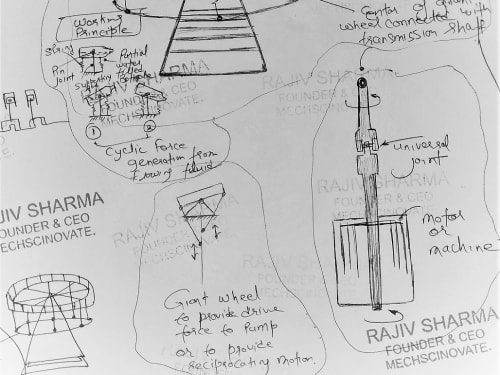 Center of
wheel connected with
transmission shaft
Working
Principle
Spring
Partial
water
filled
Pin
joint
supporting
RAJIV SHARMA
FOUNDER & CEO
MECHSCINOVATE.
RAJIV SHARMA
FOUNDER & CEO
MECHSCINOVATE.
1
2
Cyclic force
generation from
flowing fluid
universal
joint
RAJIV SHARMA
FOUNDER & CEO
MECHSCINOVATE.
JIV SHARMA
OUNDER & CEO
MECHSCINOVATE.
RAJIV SHARMA
FOUNDER & CEO
MECHSCINOVATE.
motor
or
machine
RAJIV SHARMA
FOUNDER & CEO
MECHSCINOVATE.
Giant wheel
to provide drive
force to Pump
or to provide
reciprocating motion.
RAJIV SHARMA
FOUNDER & CEO
MECHSCINOVATE.